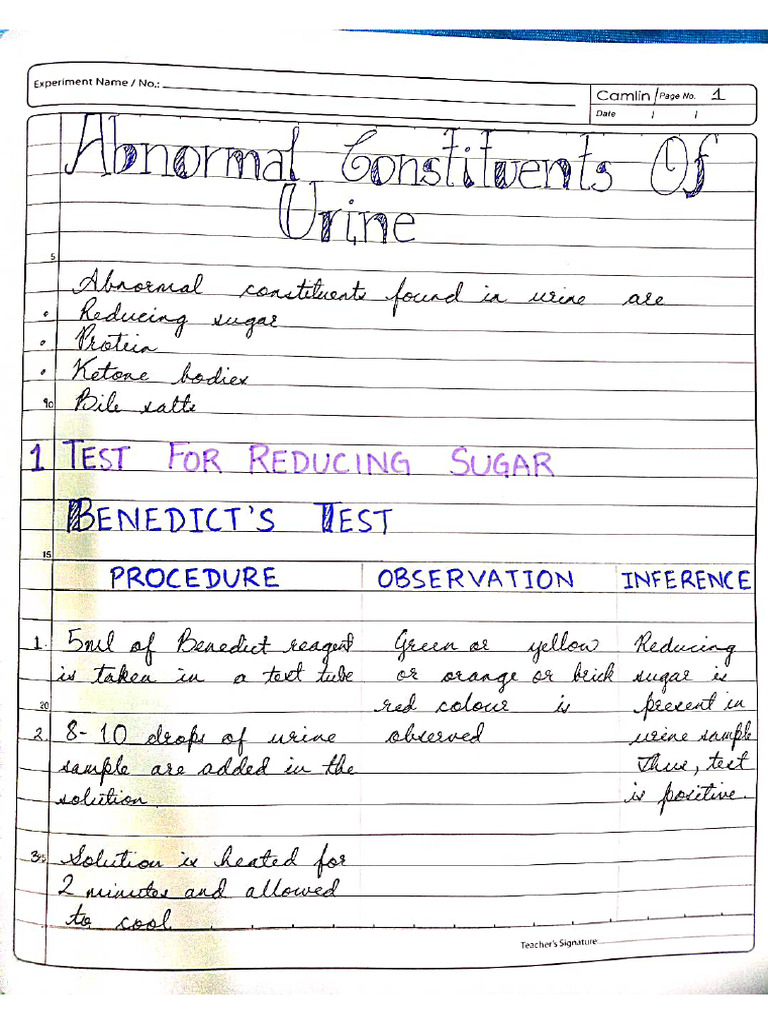 Experiment Name / No.:
Camlin Page No. 1
Date / /
Abnormal Constituents Of
Urine
5
Abnormal constituents found in urine are
Reducing sugar
Protein
Ketone bodies
10 Bile salts
1 TEST FOR REDUCING SUGAR
BENEDICT'S TEST
15
PROCEDURE OBSERVATION INFERENCE
1. 5ml of Benedict reagent Green or yellow Reducing
is taken in a test tube or orange or brick sugar is
20 red colour is present in
2. 8-10 drops of urine observed urine sample
sample are added in the Thus, test
solution. is positive.
3. Solution is heated for
2 minutes and allowed
to cool
Teacher's Signature: